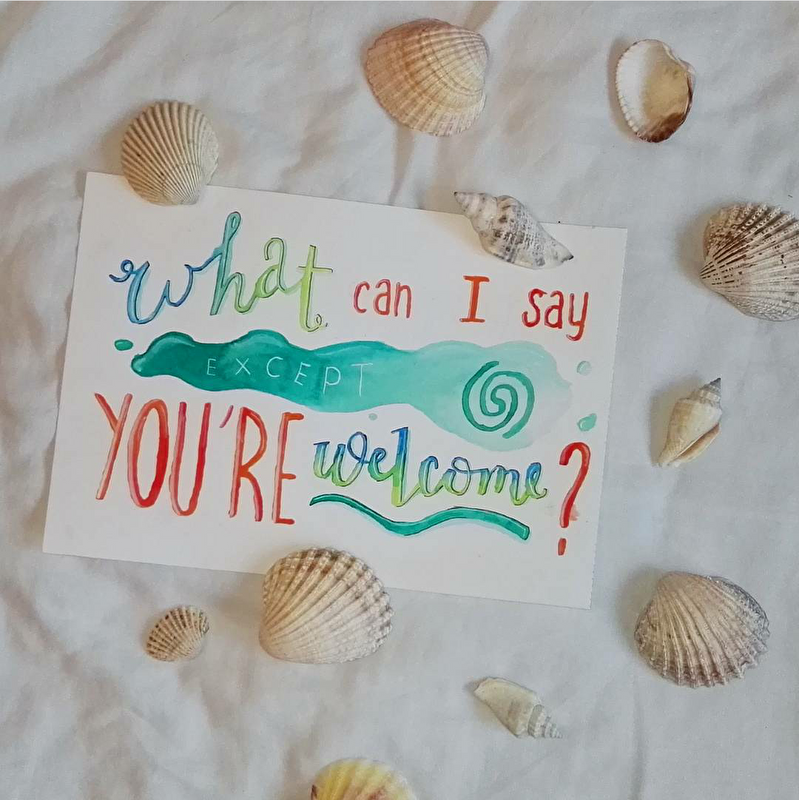 what can I say
EXCEPT
YOU'RE welcome?